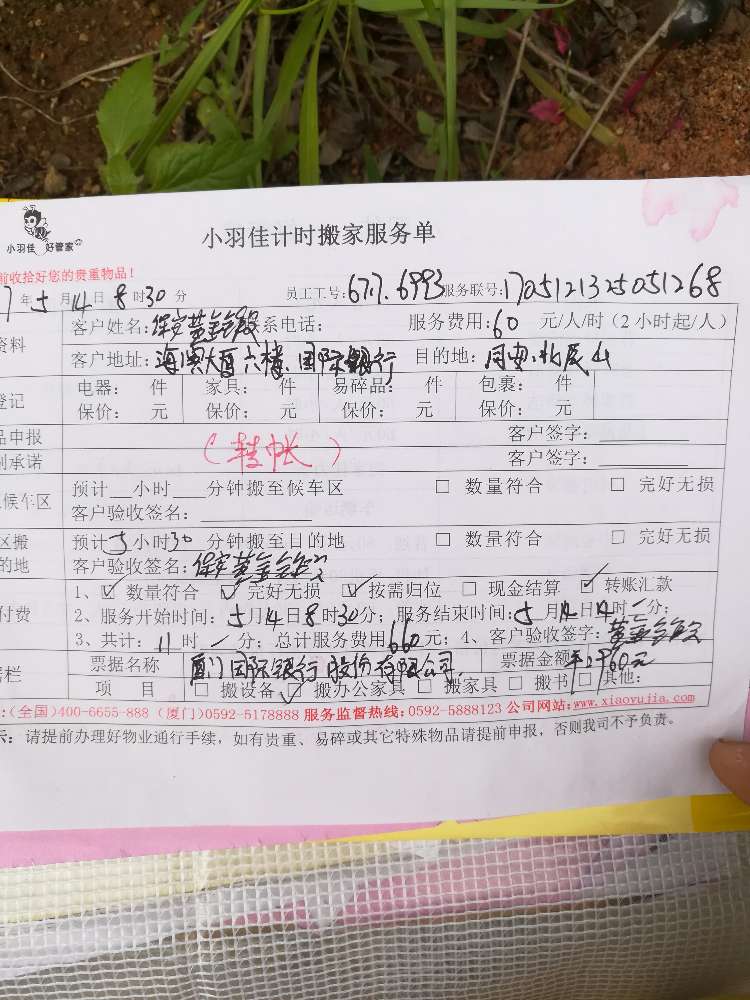 小羽佳 好管家
小羽佳计时搬家服务单
前收拾好您的贵重物品！
7年5月14日8时30分 员工工号：677.6993 服务联号：170512132505126​8
资料 客户姓名：保安黄 系电话： 服务费用：60 元/人/时（2小时起/人）
客户地址：海澳大厦六楼.国际银行 目的地：同安.北辰山
登记 电器： 件 家具： 件 易碎品： 件 包裹： 件
保价： 元 保价： 元 保价： 元 保价： 元
品申报 客户签字：
（转帐）
制承诺 客户签字：
候车区 预计 小时 分钟搬至候车区 □ 数量符合 □ 完好无损
客户验收签名：
区搬 预计5小时30分钟搬至目的地 □ 数量符合 □ 完好无损
的地 客户验收签名：保安黄
1、☑ 数量符合 ☑ 完好无损 ☑ 按需归位 □ 现金结算 ☑ 转账汇款
付费 2、服务开始时间：5月14日8时30分；服务结束时间：5月14日14时/分；
3、共计：11时/分；总计服务费用660元；4、客户验收签字：黄
据栏 票据名称 厦门国际银行股份有限公司. 票据金额
项 目 □ 搬设备 ☑ 搬办公家具 □ 搬家具 □ 搬书 □ 其他：
：(全国)400-6655-888 (厦门)0592-5178888 服务监督热线：0592-5888123 公司网站：www.xiaoyujia.com
示：请提前办理好物业通行手续，如有贵重、易碎或其它特殊物品请提前申报，否则我司不予负责。